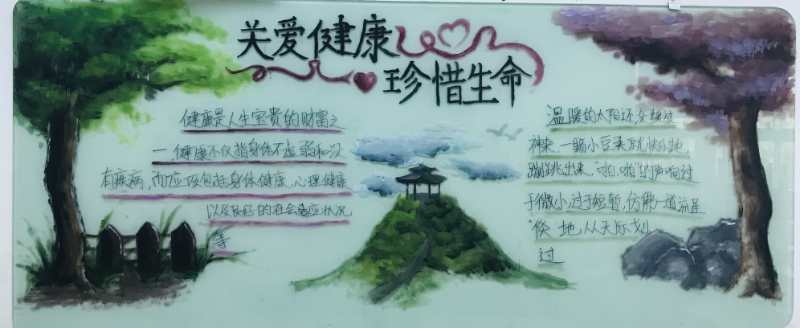 关爱健康
珍惜生命
健康是人生宝贵的财富之
一,健康不仅指身体不虚弱和没
有疾病,而应该包括身体健康、心理健康
以及良好的社会适应状况
等
温暖的太阳还没转过
神来,一颗小豆荚欢快地
蹦跳出来,"啪、啪"的声响过
于微小,过于短暂,仿佛一道流星
"倏"地,从天际划
过